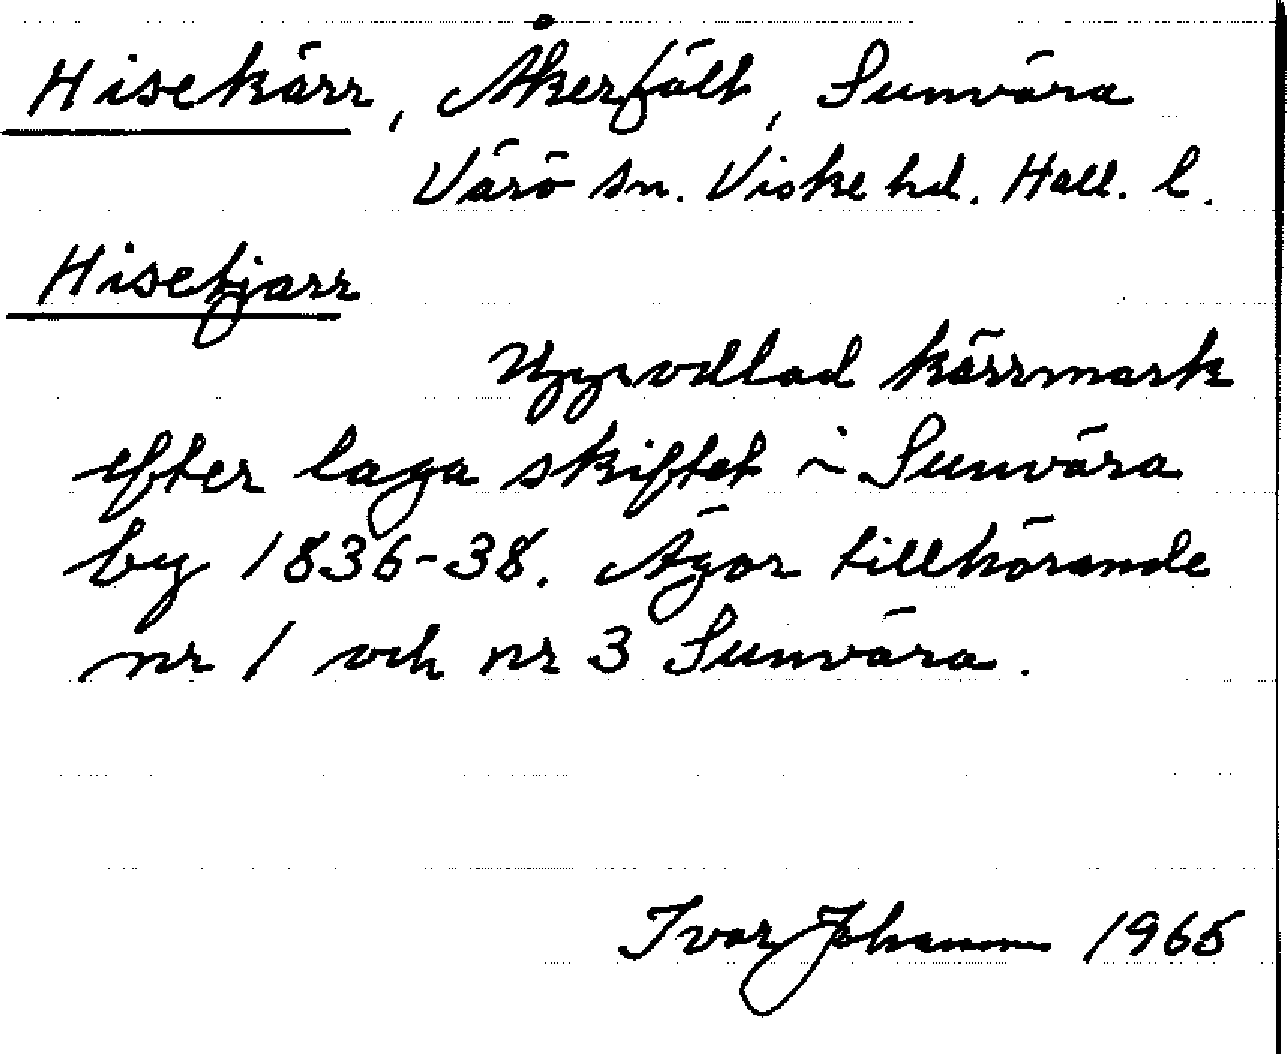 Hisekärr, Åkerfält, Sunvära
Värö sn. Viske hd. Hall. l.
Hisekjarr
Uppodlad kärrmark
efter laga skiftet i Sunvära
by 1836-38. Ägor tillhörande
nr 1 och nr 3 Sunvära.
Ivar Johansson 1965